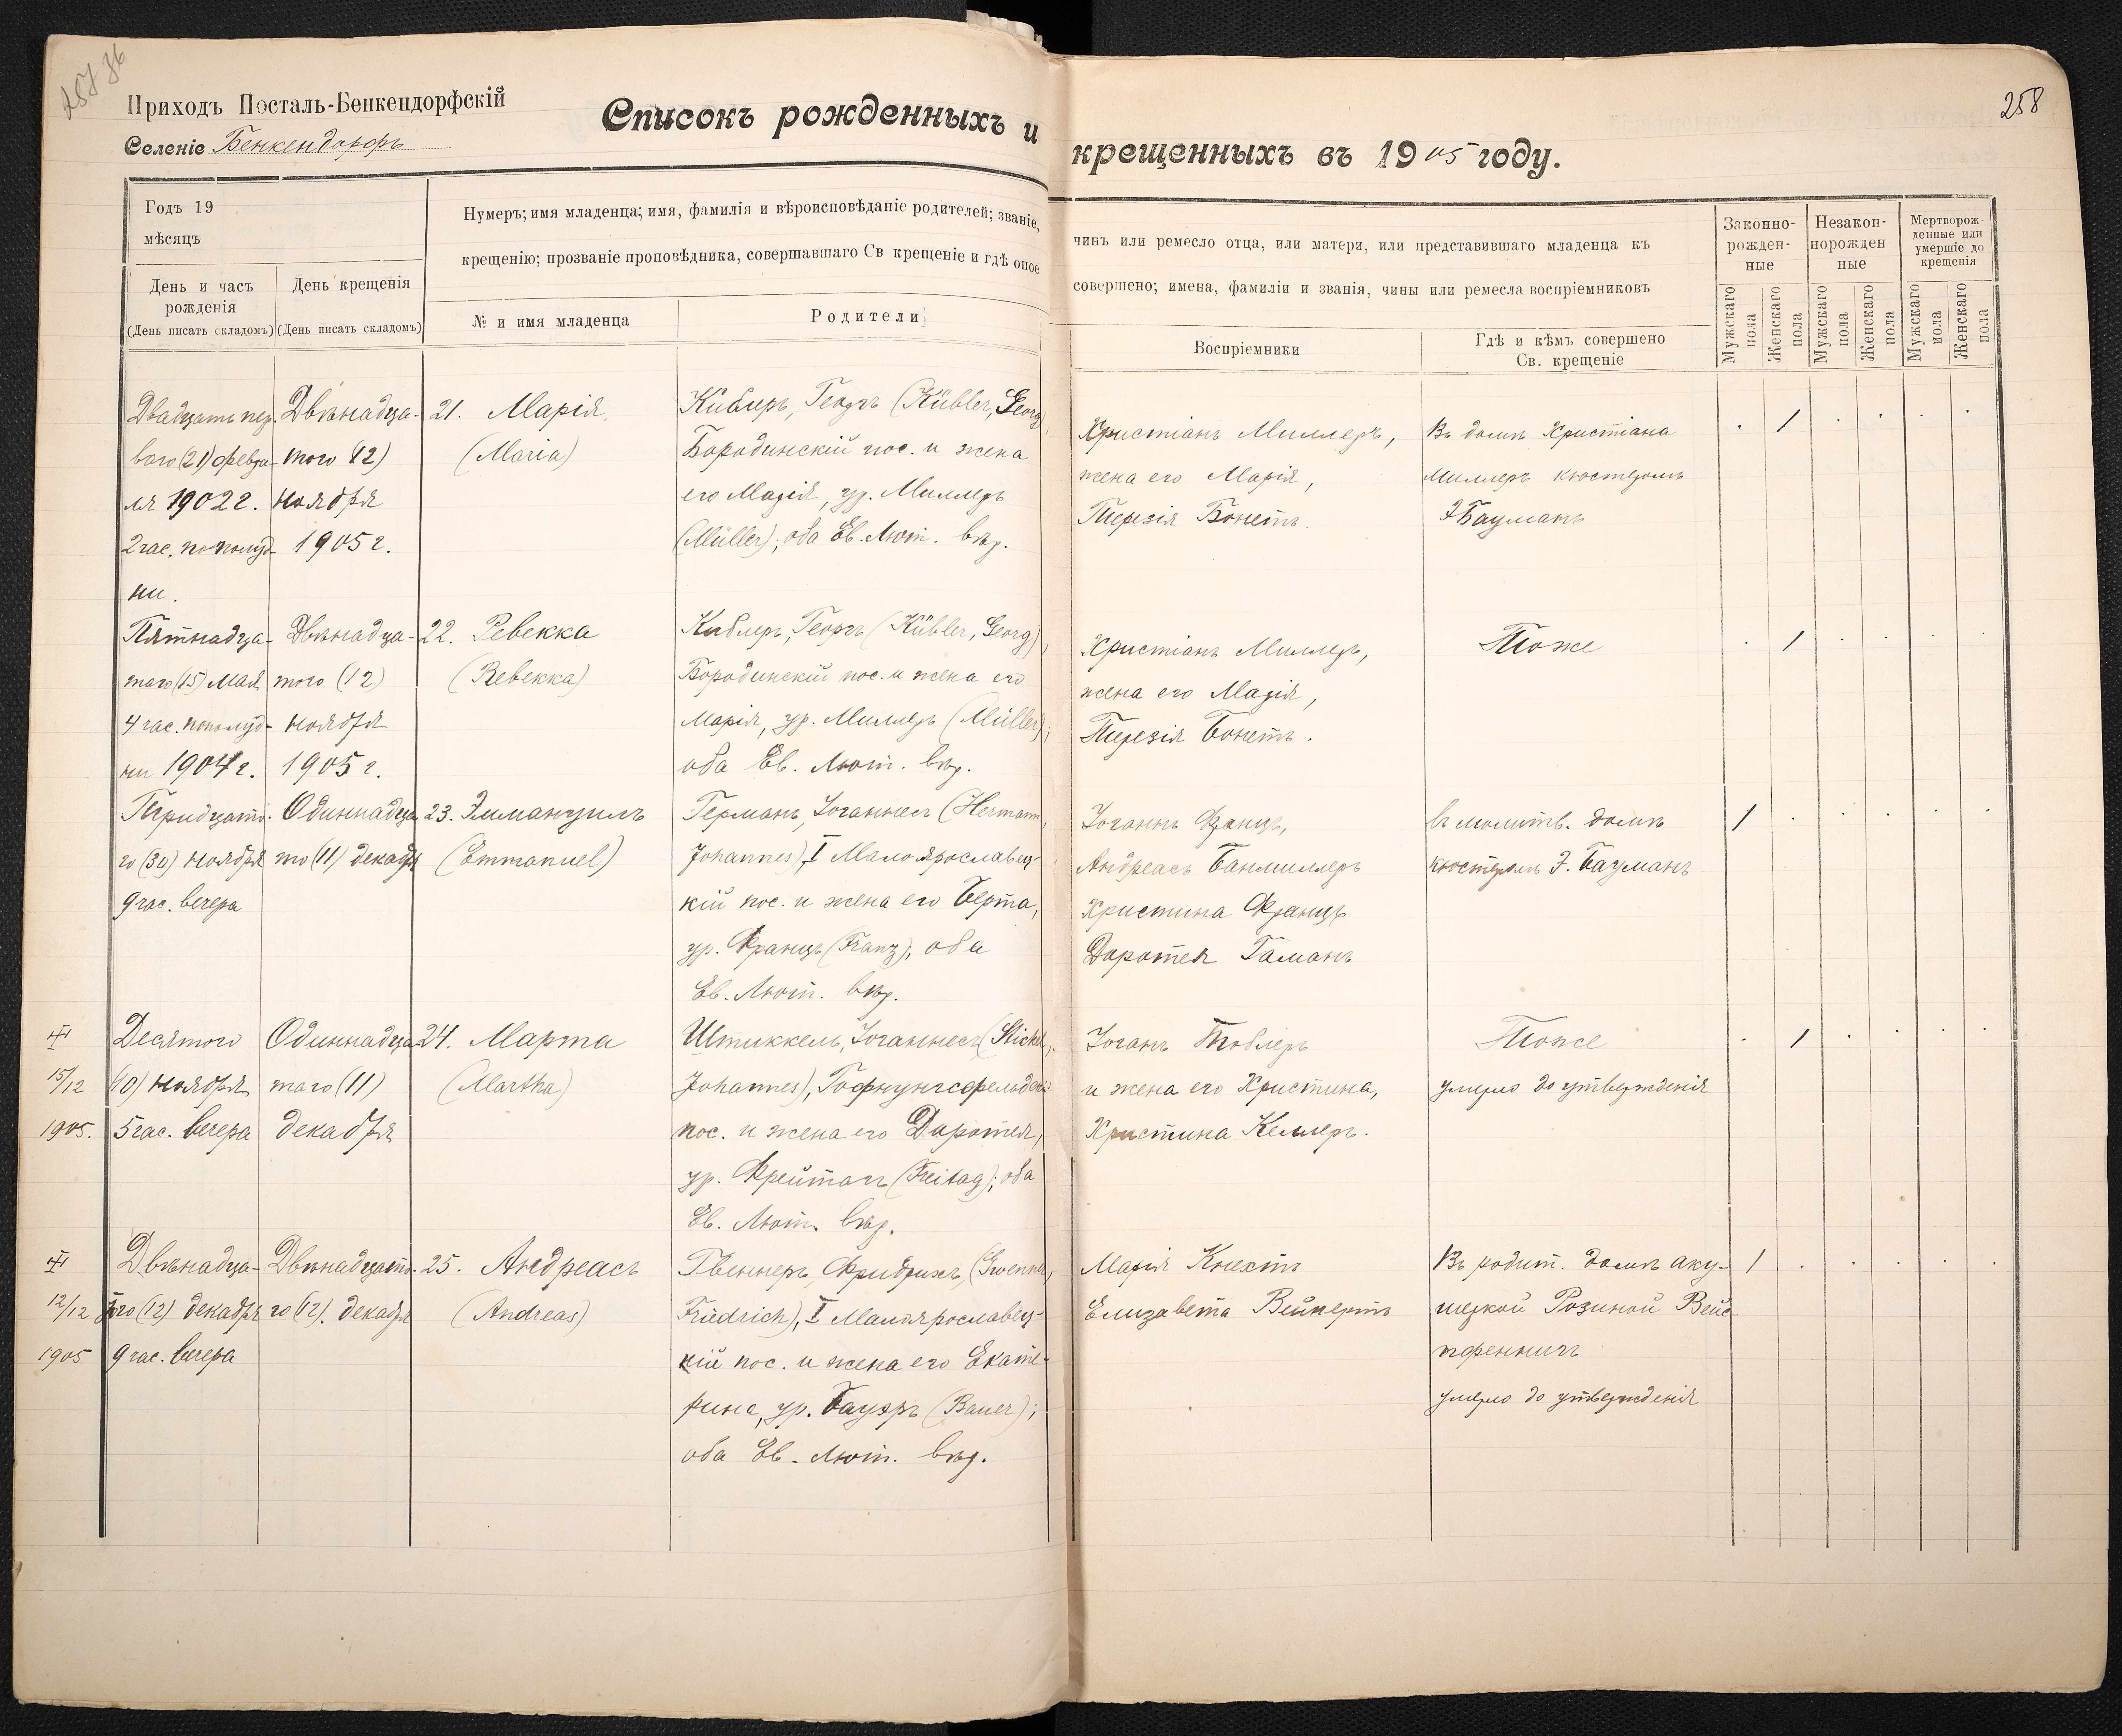 258
Приходъ Посталь-Бенкендорфскій
Селеніе Бенкендорфъ
Списокъ рожденныхъ и крещенныхъ въ 1905 году.
Годъ 19
мѣсяцъ
День и часъ
рожденія
(День писать складомъ)
День крещенія
(День писать складомъ)
Нумеръ; имя младенца; имя, фамилія и вѣроисповѣданіе родителей; званіе,
чинъ или ремесло отца, или матери, или представившаго младенца къ
крещенію; прозваніе проповѣдника, совершавшаго Св крещеніе и гдѣ оное
совершено; имена, фамиліи и званія, чины или ремесла воспріемниковъ
№ и имя младенца
Родители
Воспріемники
Гдѣ и кѣмъ совершено
Св. крещеніе
Законно-
рожден-
ные
Незакон-
норожден
ные
Мертворож-
денные или
умершіе до
крещенія
Мужскаго пола
Женскаго пола
Мужскаго пола
Женскаго пола
Мужскаго пола
Женскаго пола
Двадцать пер-
ваго (21) февра-
ля 1902 г.
2 час. пополуд-
ни.
Двѣнадца-
таго (12)
ноября
1905 г.
21. Марія
(Maria)
Кивлеръ, Георгъ (Kübler, Georg)
Бородинскій пос. и жена
его Марія, ур. Миллеръ
(Müller); оба Ев. Лют. вѣр.
Христіанъ Миллеръ,
жена его Марія,
Терезія Бонетъ.
Въ домѣ Христіана
Миллеръ кюстеромъ
Э Бауманъ
Пятнадца-
таго (15) Мая
4 час. пополуд-
ни 1904 г.
Двѣнадца-
таго (12)
ноября
1905 г.
22. Ревекка
(Rebekka)
Киблеръ, Георгъ (Kübler, Georg),
Бородинскій пос. и жена его
Марія, ур. Миллеръ (Müller);
оба Ев. Лют. вѣр.
Христіанъ Миллеръ,
жена его Марія,
Терезія Бонетъ.
Тоже
Тридцата-
го (30) ноября
9 час. вечера
Одиннадца
то (11) декабря
23. Эммануилъ
(Emmanuel)
Германъ, Іоганнесъ (Hermann,
Johannes), I Малоярославец-
кій пос. и жена его Берта,
ур. Францъ (Franz), оба
Ев. Лют. вѣр.
Іоганнъ Францъ,
Андреасъ Банмиллеръ
Христина Францъ
Доротея Гаманъ
въ молитв. домѣ
кюстеромъ Э. Бауманъ
15/12
1905.
Десятого
(10) ноября
5 час. вечера
Одиннадца
таго (11)
декабря
24. Марта
(Martha)
Штиккель, Іоганнесъ (Stickel,
Johannes), Гофнунгсфельдскій
пос. и жена его Доротея,
ур. Фрейтагъ (Freitag); оба
Ев. Лют. вѣр.
Іоганъ Тоблеръ
и жена его Христина,
Христина Келлеръ.
Тоже
умерло до утвержденія
12/12
1905
Двѣнадца-
того (12) декабря
9 час. вечера
Двѣнадцата-
го (12). декабря
25. Андреасъ
(Andreas)
Гвеннеръ, Фридрихъ, (Gwenner,
Friedrich), I Малоярославец-
кій пос. и жена его Екате-
рина, ур. Бауэръ (Bauer);
оба Ев. Лют. вѣр.
Марія Кнехтъ
Елизавета Вейпертъ
Въ родит. домѣ аку-
шеркой Розиной Вейс-
пфеннигъ
умерло до утвержденія